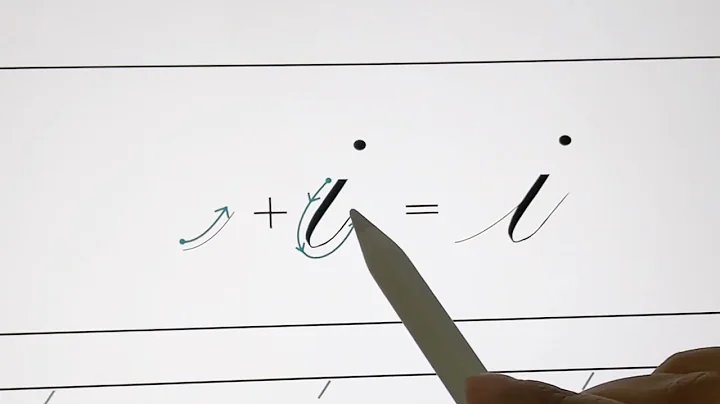 + i = i